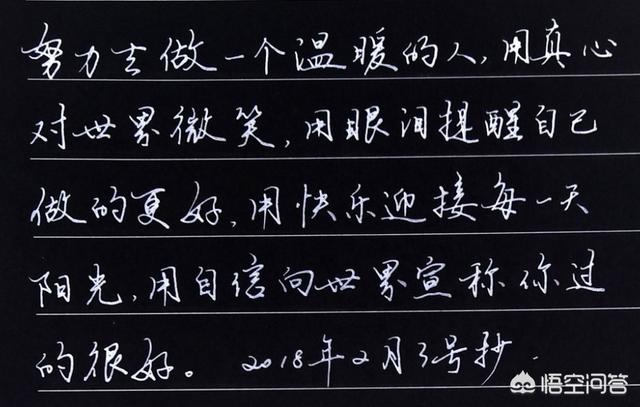 努力去做一个温暖的人,用真心
对世界微笑,用眼泪提醒自己
做的更好,用快乐迎接每一天
阳光,用自信向世界宣称你过
的很好。 2018年2月3号抄.
悟空问答